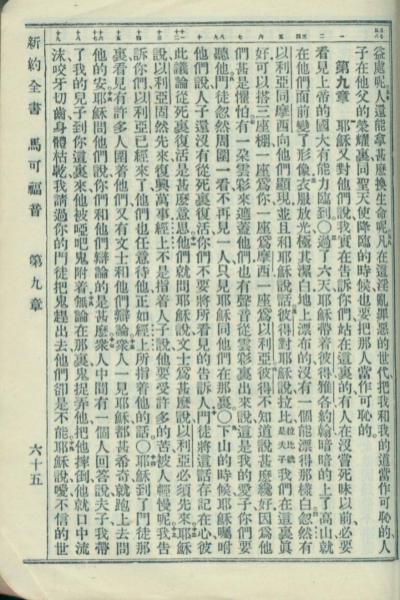 益處呢人還能拿甚麽換生命呢凡在這淫亂罪惡的世代把我和我的道當作可恥的人
子在他父的榮耀裏同聖天使降臨的時候也要把那人當作可恥的
第九章 耶穌又對他們說我實在告訴你們站在這裏的有人在沒嘗死味以前必要
看見上帝的國大有能力臨到○過了六天耶穌帶着彼得雅各約翰暗暗的上了高山就
在他們面前變了形像衣服放光極其潔白地上漂布的沒有一個能漂得那樣白忽然有
以利亞同摩西向他們顯現並且和耶穌說話彼得對耶穌說拉比我們在這裏眞
好可以搭三座棚一座爲你一座爲摩西一座爲以利亞彼得不知道說甚麽纔好因爲他
們甚是懼怕有一朵雲彩來遮蓋他們也有聲音從雲彩裏出來說這是我的愛子你們要
聽他門徒忽然周圍一看不再見一人只見耶穌同他們在那裏○下山的時候耶穌囑咐
他們說人子還沒有從死裏復活你們不要將所看見的告訴人門徒將這話存記在心彼
此議論從死裏復活是甚麽意思他們就問耶穌說文士爲甚麽說以利亞必須先來耶穌
說以利亞固然先來復興萬事經上不是指着人子說他要受許多的苦被人輕慢呢我告
訴你們以利亞已經來了他們也任意待他正如經上所指着他的話○耶穌到了門徒那
裏看見有許多人圍着他們又有文士和他們辯論衆人一見耶穌都甚希奇就跑上去問
他的安耶穌問他們說你們和他們辯論的是甚麽衆人中間有一個人回答說夫子我帶
了我的兒子到你這裏來他被啞吧鬼附着無論在那裏鬼捉弄他把他摔倒他就口中流
沫咬牙切齒身體枯乾我請過你的門徒把鬼趕出去他們卻是不能耶穌說噯不信的世
新約全書 馬可福音 第九章 六十五